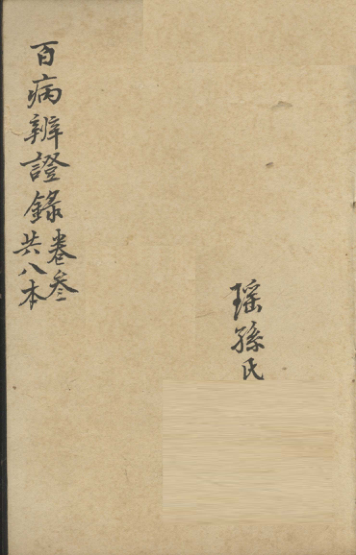 百病辨證錄卷叁
共八本
瑶孫氏